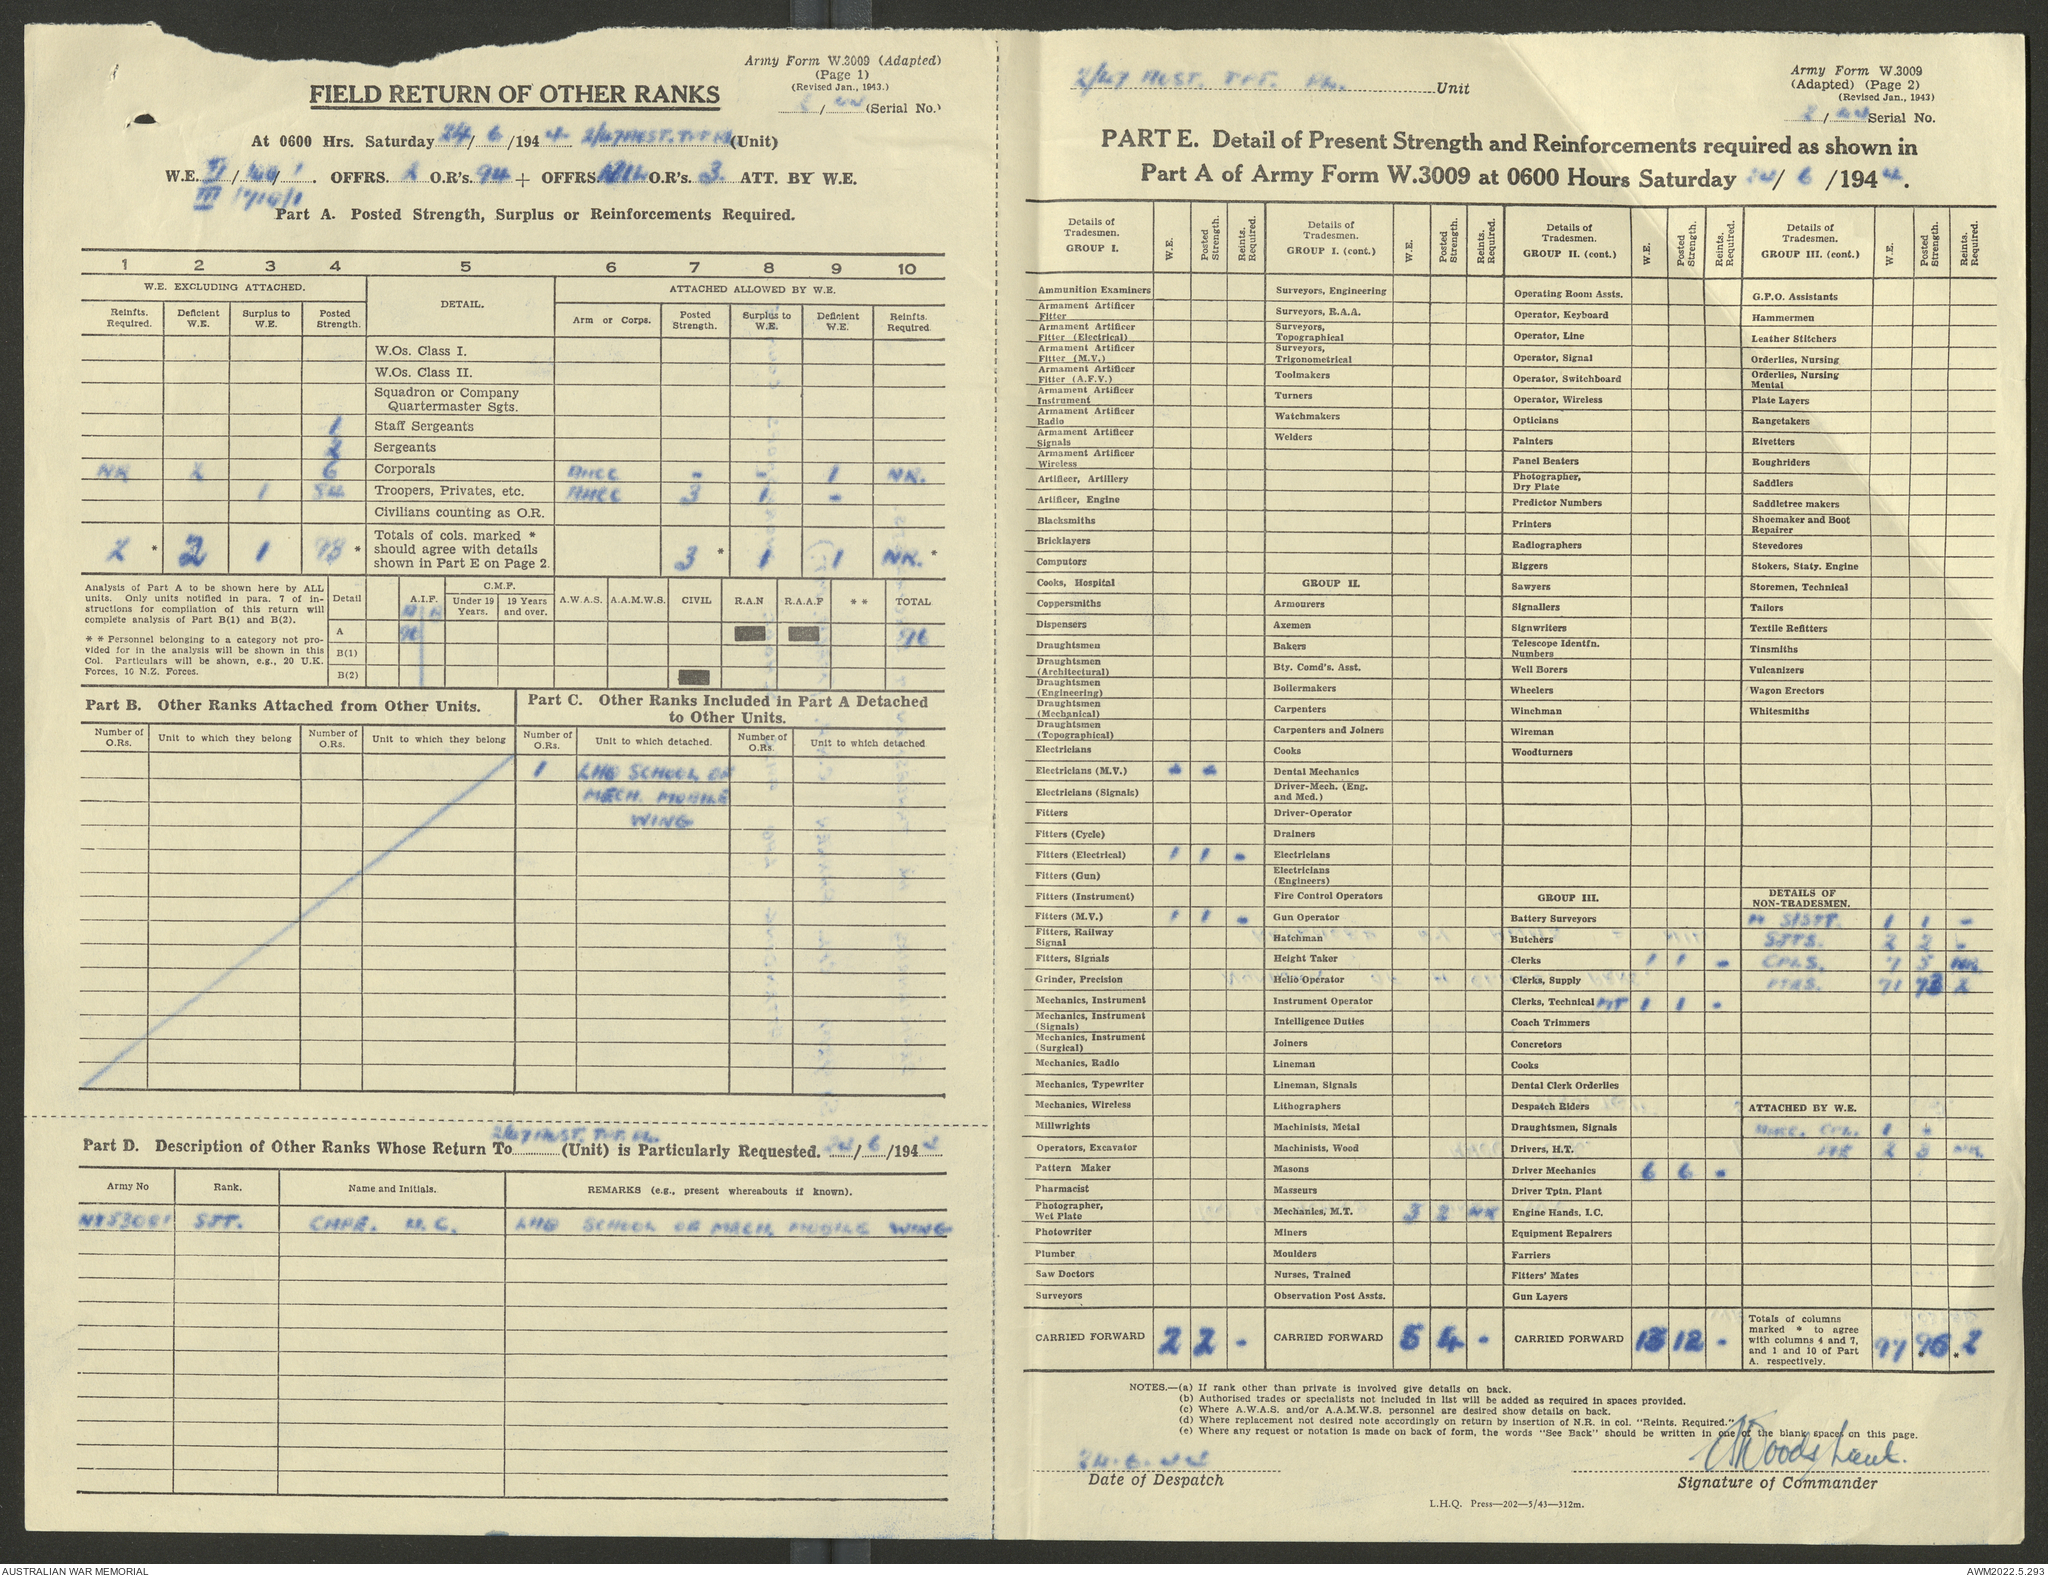 Army Form W.3009 (Adapted)
(Page 1)
(Revised Jan., 1943.)
/ 44 (Serial No.)
FIELD RETURN OF OTHER RANKS
At 0600 Hrs. Saturday 24/ 6 /194 4 (Unit)
W.E. VI / / 1 . OFFRS. 2 O.R's. 94 + OFFRS. NIL O.R's. 3 ATT. BY W.E.
III
Part A. Posted Strength, Surplus or Reinforcements Required.
1 2 3 4 5 6 7 8 9 10
W.E. EXCLUDING ATTACHED. DETAIL. ATTACHED ALLOWED BY W.E.
Reinfts. Required. Deficient W.E. Surplus to W.E. Posted Strength. Arm or Corps. Posted Strength. Surplus to W.E. Deficient W.E. Reinfts. Required.
W.Os. Class I.
W.Os. Class II.
Squadron or Company
Quartermaster Sgts.
1 Staff Sergeants
2 Sergeants
NR 2 6 Corporals AMCC - - 1 NR.
1 84 Troopers, Privates, etc. AMCC 3 1 -
Civilians counting as O.R.
2 * 2 1 * Totals of cols. marked * should agree with details shown in Part E on Page 2. 3 * 1 1 NR. *
Analysis of Part A to be shown here by ALL
units. Only units notified in para. 7 of in-
structions for compilation of this return will
complete analysis of Part B(1) and B(2).
* * Personnel belonging to a category not pro-
vided for in the analysis will be shown in this
Col. Particulars will be shown, e.g., 20 U.K.
Forces, 10 N.Z. Forces.
Detail A.I.F. C.M.F. Under 19 Years. 19 Years and over. A.W.A.S. A.A.M.W.S. CIVIL R.A.N R.A.A.F * * TOTAL
A 96 96
B(1)
B(2)
Part B. Other Ranks Attached from Other Units.
Number of O.Rs. Unit to which they belong Number of O.Rs. Unit to which they belong
Part C. Other Ranks Included in Part A Detached
to Other Units.
Number of O.Rs. Unit to which detached. Number of O.Rs. Unit to which detached
1 LHQ SCHOOL OF
MECH. MOBILE
WING
2/47 TPT. PL.
Part D. Description of Other Ranks Whose Return To (Unit) is Particularly Requested. / 6 /194
Army No Rank. Name and Initials. REMARKS (e.g., present whereabouts if known).
SJT. LHQ SCHOOL OF MECH. MOBILE WING
2/47 TPT. PL. Unit
Army Form W.3009
(Adapted) (Page 2)
(Revised Jan., 1943)
/ 44 Serial No.
PART E. Detail of Present Strength and Reinforcements required as shown in
Part A of Army Form W.3009 at 0600 Hours Saturday 24/ 6 /194 4.
Details of Tradesmen. GROUP I. W.E. Posted Strength. Reints. Required.
Ammunition Examiners
Armament Artificer Fitter
Armament Artificer Fitter (Electrical)
Armament Artificer Fitter (M.V.)
Armament Artificer Fitter (A.F.V.)
Armament Artificer Instrument
Armament Artificer Radio
Armament Artificer Signals
Armament Artificer Wireless
Artificer, Artillery
Artificer, Engine
Blacksmiths
Bricklayers
Computors
Cooks, Hospital
Coppersmiths
Dispensers
Draughtsmen
Draughtsmen (Architectural)
Draughtsmen (Engineering)
Draughtsmen (Mechanical)
Draughtsmen (Topographical)
Electricians
Electricians (M.V.)
Electricians (Signals)
Fitters
Fitters (Cycle)
Fitters (Electrical) 1 1 -
Fitters (Gun)
Fitters (Instrument)
Fitters (M.V.) 1 1 -
Fitters, Railway Signal
Fitters, Signals
Grinder, Precision
Mechanics, Instrument
Mechanics, Instrument (Signals)
Mechanics, Instrument (Surgical)
Mechanics, Radio
Mechanics, Typewriter
Mechanics, Wireless
Millwrights
Operators, Excavator
Pattern Maker
Pharmacist
Photographer, Wet Plate
Photowriter
Plumber
Saw Doctors
Surveyors
CARRIED FORWARD 2 2 -
Details of Tradesmen. GROUP I. (cont.) W.E. Posted Strength. Reints. Required.
Surveyors, Engineering
Surveyors, R.A.A.
Surveyors, Topographical
Surveyors, Trigonometrical
Toolmakers
Turners
Watchmakers
Welders
GROUP II.
Armourers
Axemen
Bakers
Bty. Comd's. Asst.
Boilermakers
Carpenters
Carpenters and Joiners
Cooks
Dental Mechanics
Driver-Mech. (Eng. and Med.)
Driver-Operator
Drainers
Electricians
Electricians (Engineers)
Fire Control Operators
Gun Operator
Hatchman
Height Taker
Helio Operator
Instrument Operator
Intelligence Duties
Joiners
Lineman
Lineman, Signals
Lithographers
Machinists, Metal
Machinists, Wood
Masons
Masseurs
Mechanics, M.T. 3 2 NR
Miners
Moulders
Nurses, Trained
Observation Post Assts.
CARRIED FORWARD 5 4 -
Details of Tradesmen. GROUP II. (cont.) W.E. Posted Strength. Reints. Required.
Operating Room Assts.
Operator, Keyboard
Operator, Line
Operator, Signal
Operator, Switchboard
Operator, Wireless
Opticians
Painters
Panel Beaters
Photographer, Dry Plate
Predictor Numbers
Printers
Radiographers
Riggers
Sawyers
Signallers
Signwriters
Telescope Identfn. Numbers
Well Borers
Wheelers
Winchman
Wireman
Woodturners
GROUP III.
Battery Surveyors
Butchers
Clerks 1 1 -
Clerks, Supply
Clerks, Technical MT 1 1 -
Coach Trimmers
Concretors
Cooks
Dental Clerk Orderlies
Despatch Riders
Draughtsmen, Signals
Drivers, H.T.
Driver Mechanics 6 6 -
Driver Tptn. Plant
Engine Hands, I.C.
Equipment Repairers
Farriers
Fitters' Mates
Gun Layers
CARRIED FORWARD 13 12 -
Details of Tradesmen. GROUP III. (cont.) W.E. Posted Strength. Reints. Required.
G.P.O. Assistants
Hammermen
Leather Stitchers
Orderlies, Nursing
Orderlies, Nursing Mental
Plate Layers
Rangetakers
Rivetters
Roughriders
Saddlers
Saddletree makers
Shoemaker and Boot Repairer
Stevedores
Stokers, Staty. Engine
Storemen, Technical
Tailors
Textile Refitters
Tinsmiths
Vulcanizers
Wagon Erectors
Whitesmiths
DETAILS OF NON-TRADESMEN.
S/SJT. 1 1 -
SJTS. 2 2 -
CPLS. 7 5 NR.
PTES. 71 73 2
ATTACHED BY W.E.
AMCC. CPL. 1 -
PTE 2 3 NR.
Totals of columns marked * to agree with columns 4 and 7, and 1 and 10 of Part A. respectively. 97 96 * 2
NOTES.—(a) If rank other than private is involved give details on back.
(b) Authorised trades or specialists not included in list will be added as required in spaces provided.
(c) Where A.W.A.S. and/or A.A.M.W.S. personnel are desired show details on back.
(d) Where replacement not desired note accordingly on return by insertion of N.R. in col. "Reints. Required."
(e) Where any request or notation is made on back of form, the words "See Back" should be written in one of the blank spaces on this page.
24.6.44
Date of Despatch
Woods Lieut.
Signature of Commander
L.H.Q. Press—202—5/43—312m.
AUSTRALIAN WAR MEMORIAL
AWM2022.5.293